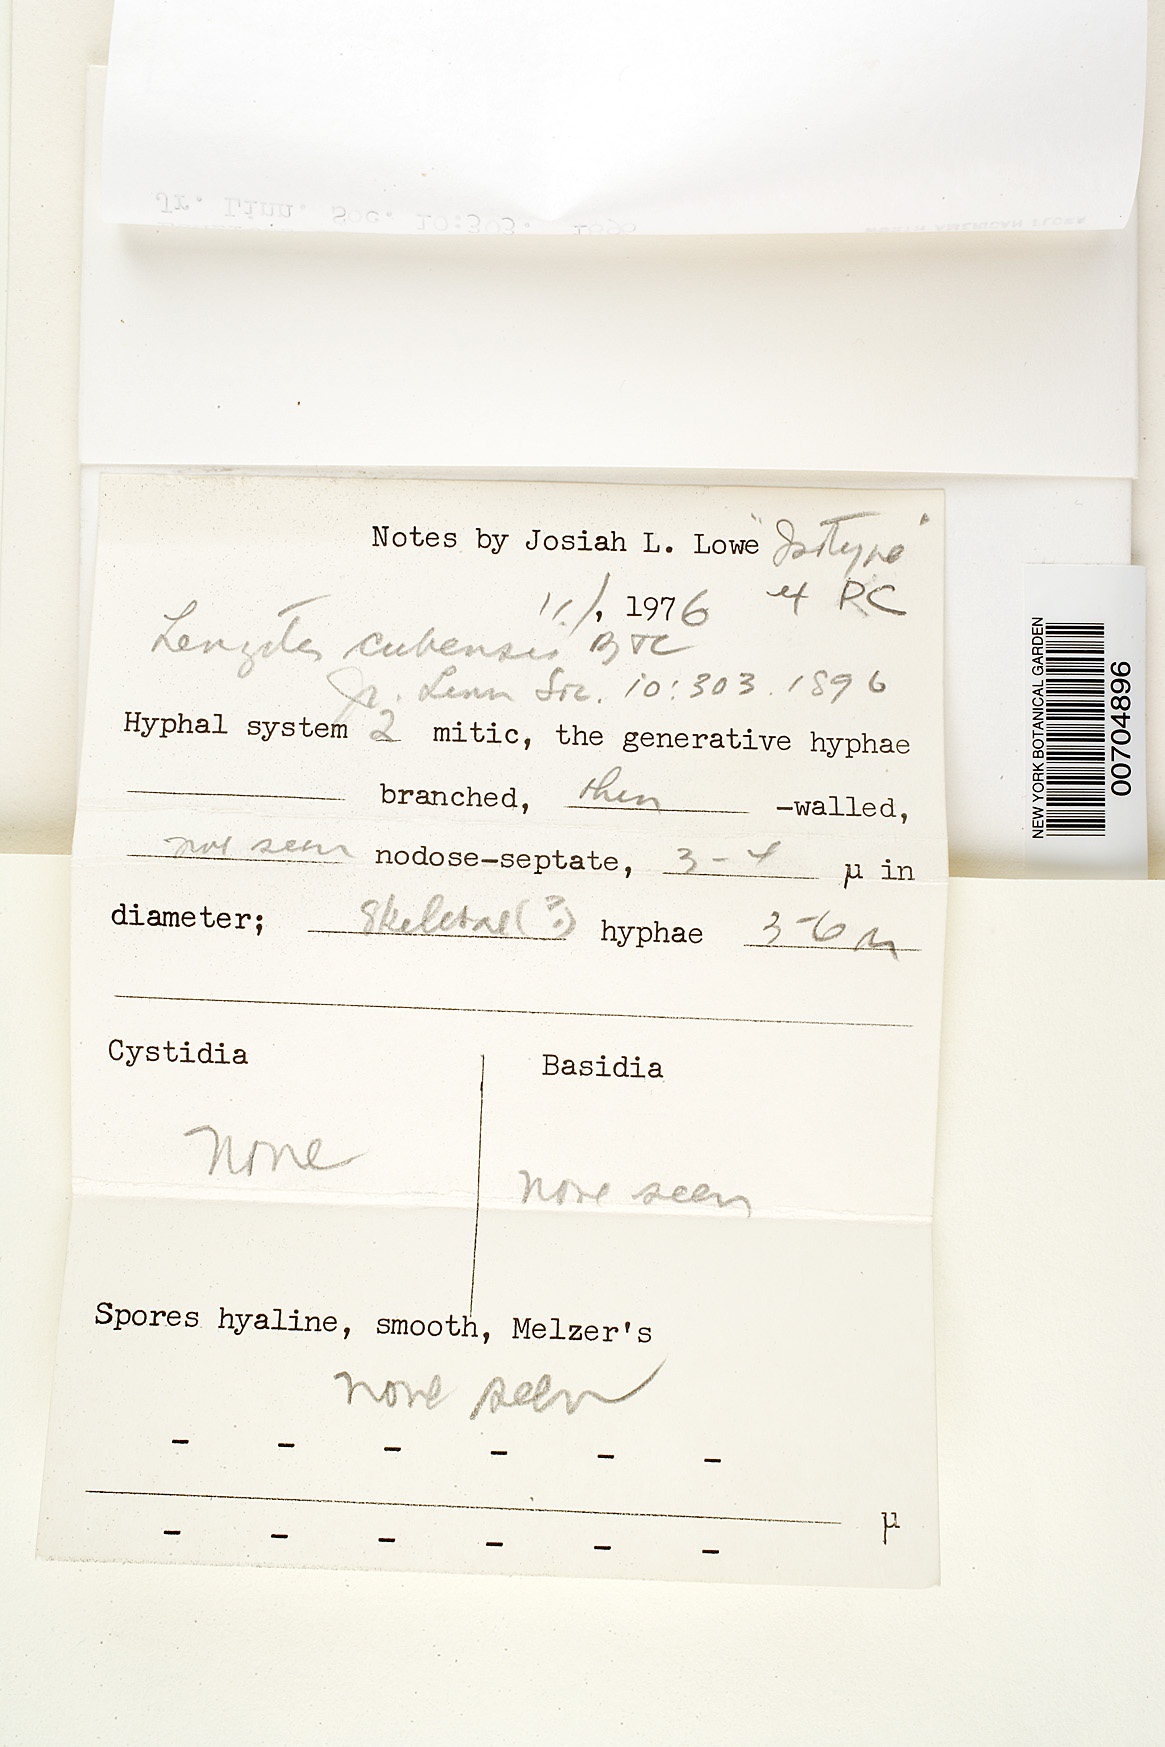 Jr. Linn. Soc. 10:303. 1896
NORTH AMERICAN FLORA
Notes by Josiah L. Lowe "Isotype"
11/, 1976 ex RC
Lenzites cubensis B&C
Jr. Linn Soc. 10:303.1896
Hyphal system 2 mitic, the generative hyphae
branched, thin -walled,
not seen nodose-septate, 3-4 µ in
diameter; skeletal(?) hyphae 3-6 µ
Cystidia Basidia
none
none seen
Spores hyaline, smooth, Melzer's
none seen
- - - - - -
µ
- - - - - -
NEW YORK BOTANICAL GARDEN
00704896